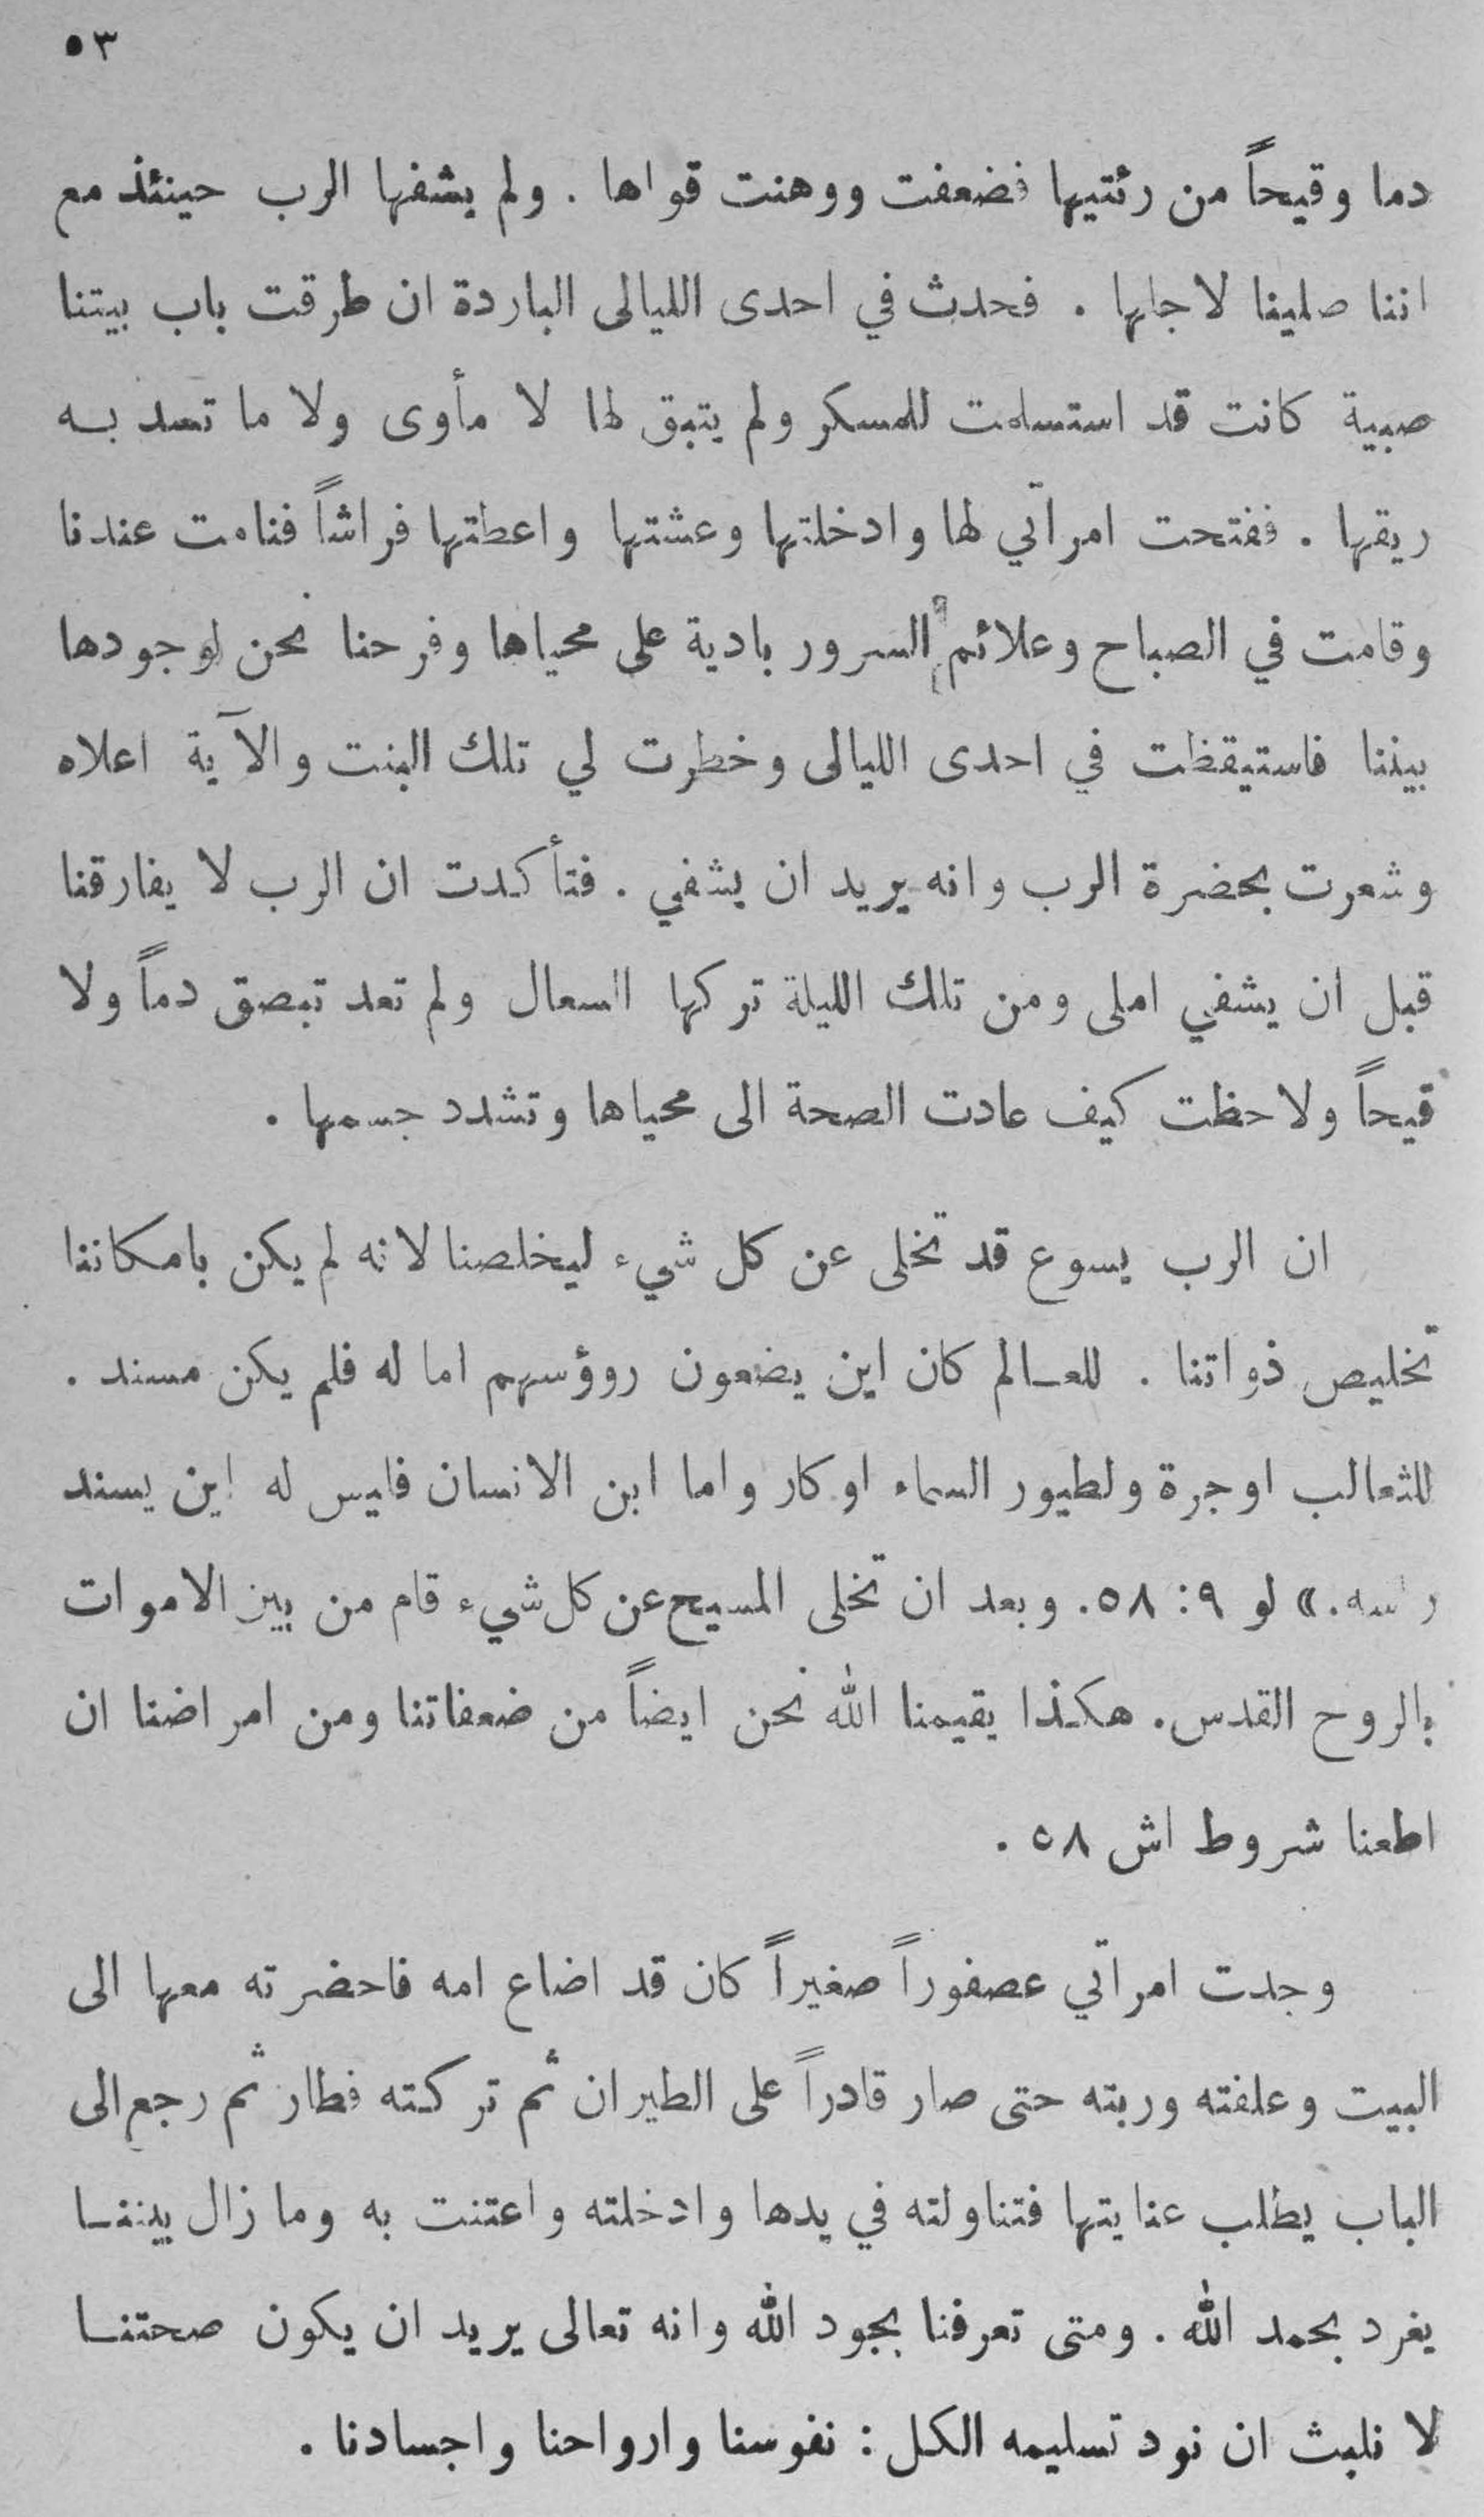 ٥٣
دما وقيحاً من رئتيها فضعفت ووهنت قواها . ولم يشفها الرب حينئذ مع
اننا صلينا لاجلها . فحدث في احدى الليالى الباردة ان طرقت باب بيتنا
صبية كانت قد استسلمت للمسكر ولم يتبق لها لا مأوى ولا ما تسد به
ريقها . ففتحت امرآتي لها وادخلتها وعشتها واعطتها فراشاً فنامت عندنا
وقامت في الصباح وعلائم السرور بادية على محياها وفرحنا نحن لوجودها
بيننا فاستيقظت في احدى الليالى وخطرت لي تلك البنت والآية اعلاه
وشعرت بحضرة الرب وانه يريد ان يشفي . فتأكدت ان الرب لا يفارقنا
قبل ان يشفي املى ومن تلك الليلة تركها السعال ولم تعد تبصق دماً ولا
قيحاً ولاحظت كيف عادت الصحة الى محياها وتشدد جسمها .
ان الرب يسوع قد تخلى عن كل شيء ليخلصنا لانه لم يكن بامكاننا
تخليص ذواتنا . للعالم كان اين يضعون روؤسهم اما له فلم يكن مسند .
للثعالب اوجرة ولطيور السماء اوكار واما ابن الانسان فليس له اين يسند
رأسه.» لو ٩: ٥٨. وبعد ان تخلى المسيح عن كل شيء قام من بين الاموات
بالروح القدس. هكذا يقيمنا الله نحن ايضاً من ضعفاتنا ومن امراضنا ان
اطعنا شروط اش ٥٨ .
وجدت امرآتي عصفوراً صغيراً كان قد اضاع امه فاحضرته معها الى
البيت وعلفته وربته حتى صار قادراً على الطيران ثم تركته فطار ثم رجع الى
الباب يطلب عنايتها فتناولته في يدها وادخلته واعتنت به وما زال بيننا
يغرد بحمد الله . ومتى تعرفنا بجود الله وانه تعالى يريد ان يكون صحتنا
لا نلبث ان نود تسليمه الكل : نفوسنا وارواحنا واجسادنا .